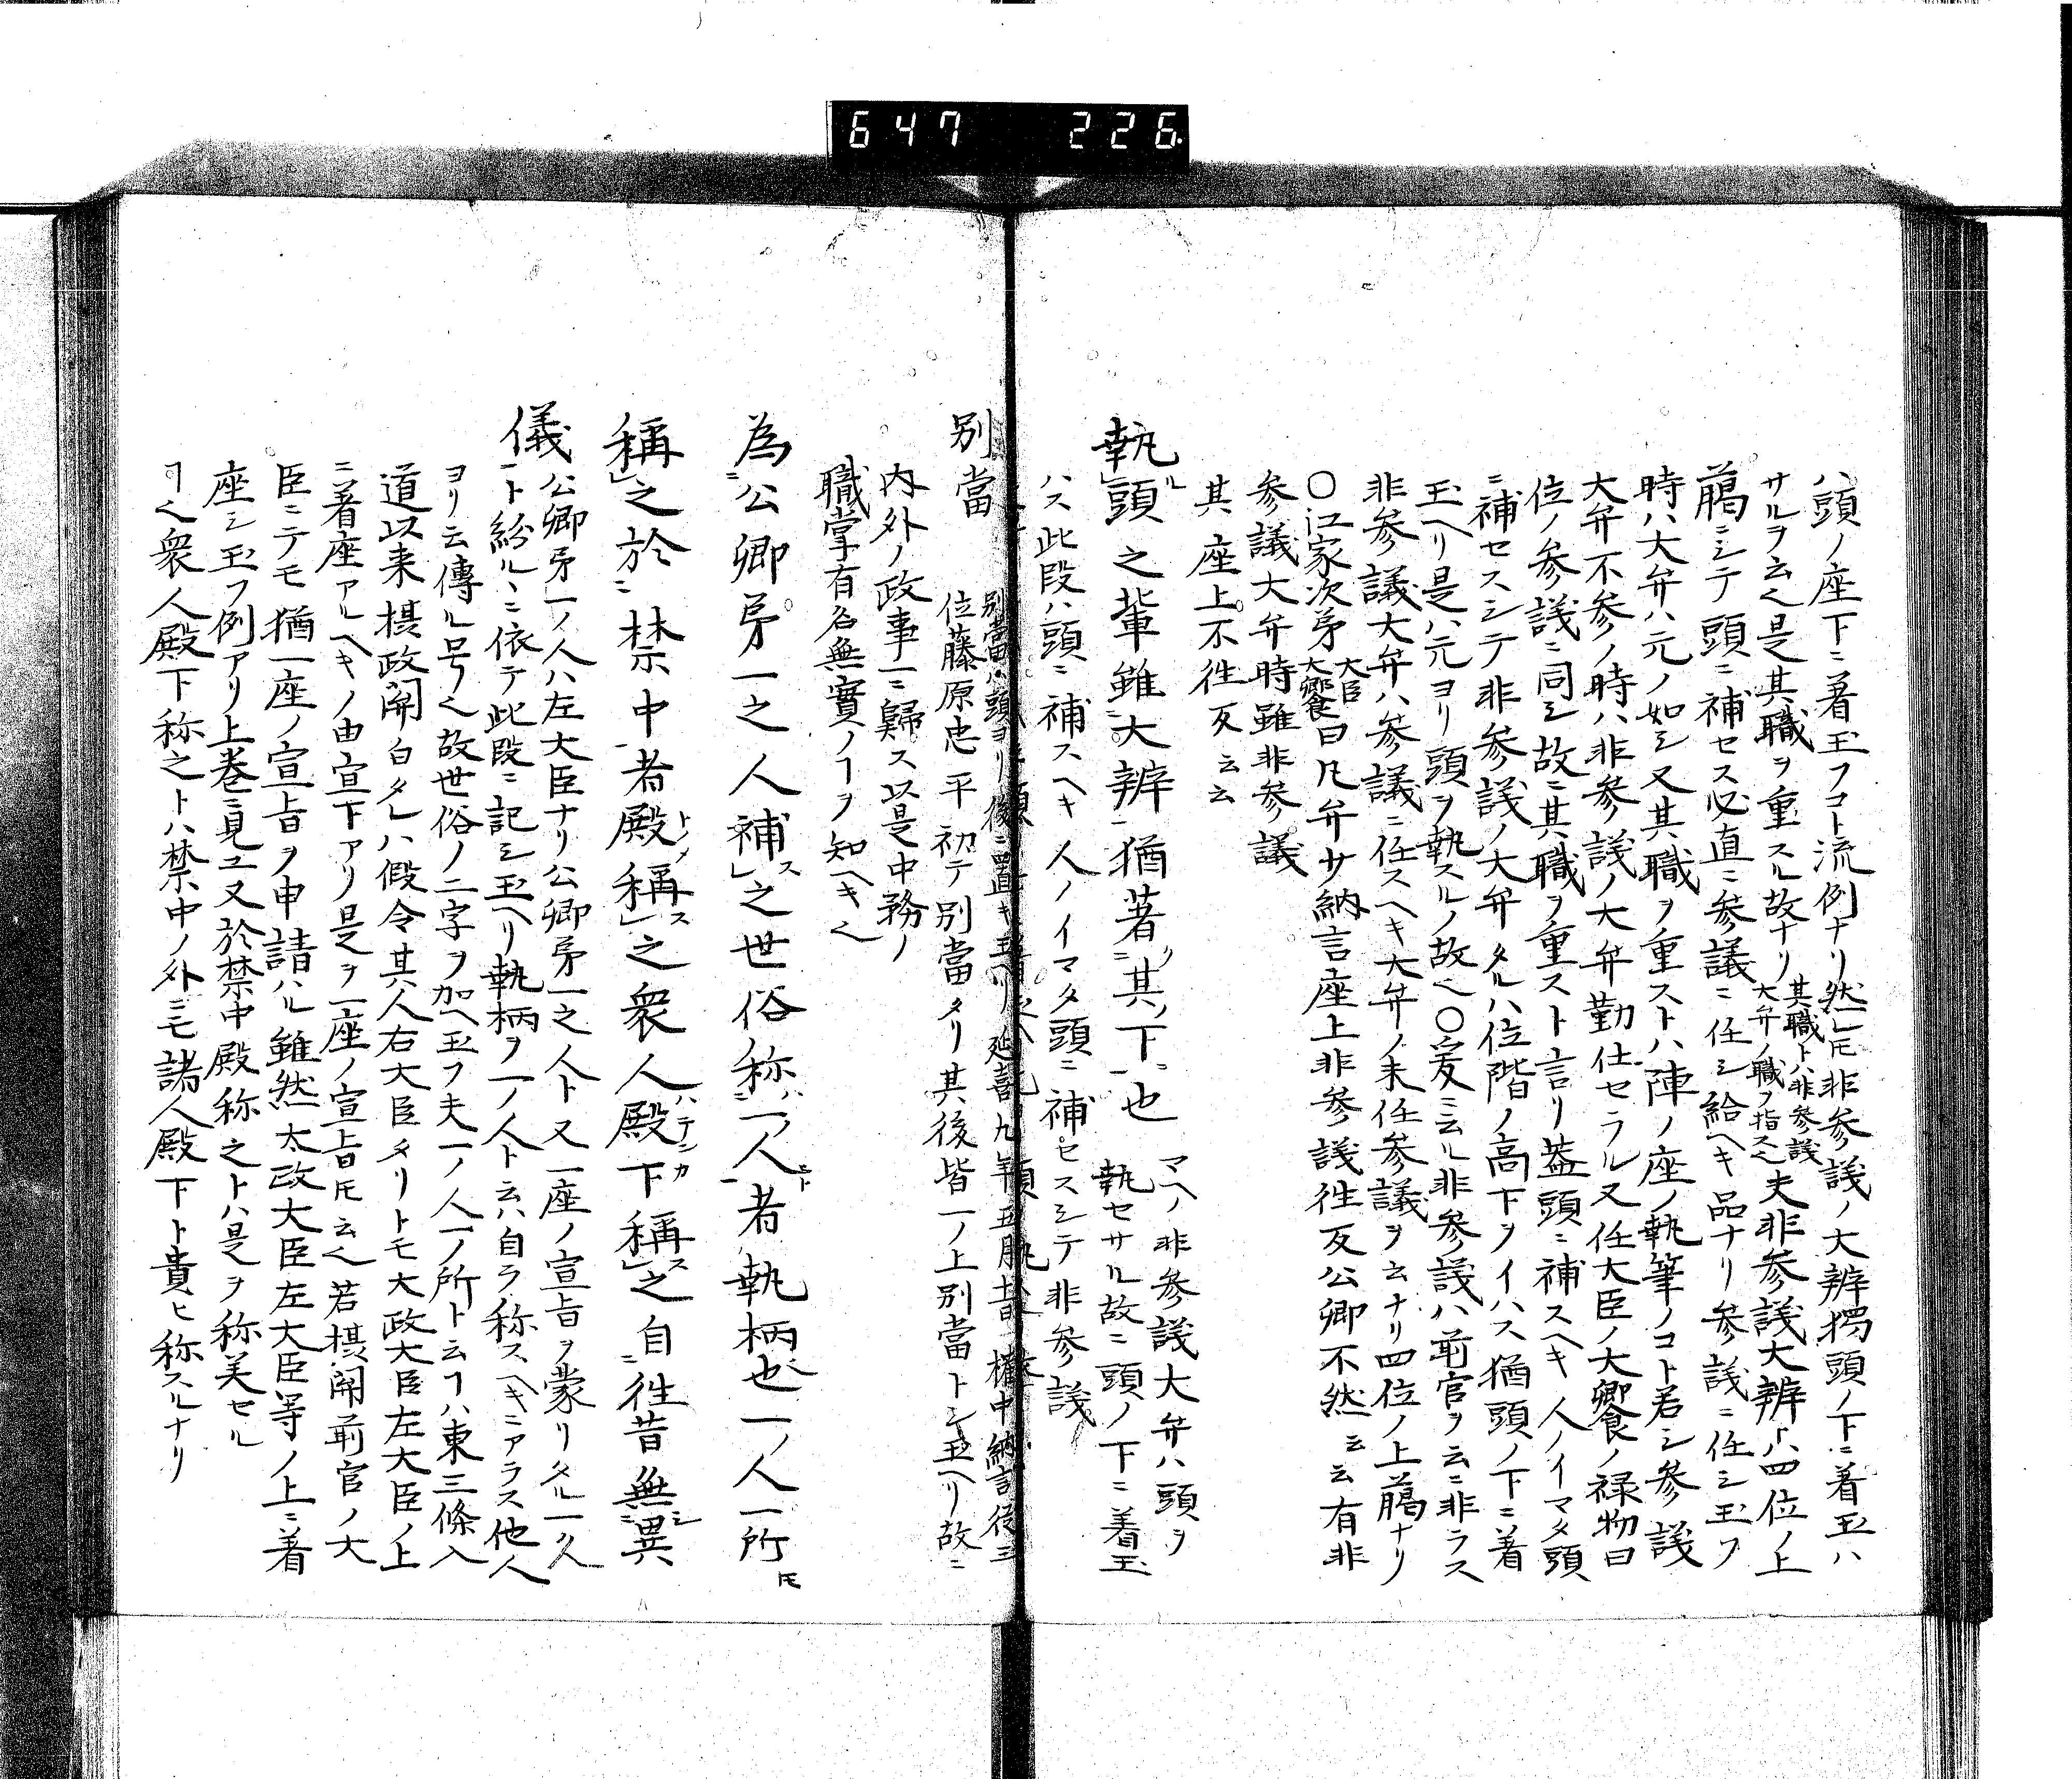 647 226
ハ頭ノ座下ニ著玉フコト流例ナリ然レ𪜈非参議ノ大辨猶頭ノ下ニ着玉ハ
サルヲ云〱是其職ヲ重スル故ナリ其職トハ非参議大弁ノ職ヲ指ス〱夫非参議大辨トハ四位ノ上
﨟ニシテ頭ニ補セス必直ニ参議ニ任シ給ヘキ品ナリ参議ニ任シ玉フ
時ハ大弁ハ元ノ如シ又其職ヲ重ストハ陣ノ座ノ執筆ノコト若シ参議
大弁不参ノ時ハ非参議ノ大弁勤仕セラル又任大臣ノ大饗ノ禄物曰
位ノ参議ニ同シ故ニ其職ヲ重スト言リ蓋頭ニ補スヘキ人ノイマタ頭
ニ補セスシテ非参議ノ大弁タルハ位階ノ高下ヲイハス猶頭ノ下ニ着
玉ヘリ是ハ元ヨリ頭ヲ執スルノ故〱〇爰ニ云ル非参議ハ前官ヲ云ニ非ラス
非参議大弁ハ参議ニ任スヘキ大弁ノ未任参議ヲ云ナリ四位ノ上﨟ナリ
〇江家次第大臣大饗曰凡弁少納言座上非参議徃反公卿不然云云有非
参議大弁時雖非参議
其座上不徃反云云
執頭之輩雖大辨猶著其ノ下ニ也マヘノ非参議大弁ハ頭ヲ執セサル故ニ頭ノ下ニ着玉
ハス此段ハ頭ニ補スヘキ人ノイマタ頭ニ補セスシテ非参議
別當別當ハ頭ヨリ後ニ置キ玉ヘリ延喜九年五月 権中納言従三位藤原忠平初テ別當タリ其後皆一ノ上別當トシ玉ヘリ故ニ
内外ノ政事一ニ歸ス以是中務ノ
職掌有名無實ノヿヲ知ヘキ〱
為公卿第一之人補ス之世俗ノ称ハ一ノ人ト者執柄也一ノ人一ノ所𪜈
稱之於禁中ニ者殿トノメ稱ス之衆人ハ殿下テンカ稱ス之自徃昔無シ異
儀公卿第一ノ人ハ左大臣ナリ公卿第一之人ト又一座ノ宣旨ヲ蒙リタル一ノ人
ト紛ルヽニ依テ此段ニ記シ玉ヘリ執柄ヲ一ノ人ト云ハ自ラ称スヘキニアラス他人
ヨリ云傳ル号〱故世俗ノ二字ヲ加ヘ玉フ夫一ノ人一ノ所ト云フハ東三條入
道以来摂政関白タレハ假令其人右大臣タリトモ太政大臣左大臣ノ上
ニ着座アルヘキノ由宣下アリ是ヲ一座ノ宣旨𪜈云〱若摂関前官ノ大
臣ニテモ猶一座ノ宣旨ヲ申請ハル雖然太政大臣左大臣等ノ上ニ着
座シ玉フ例アリ上巻ニ見ユ又於禁中殿称之トハ是ヲ称美セル
ヿ〱衆人殿下称之トハ禁中ノ外ニモ諸人殿下ト貴ヒ称スルナリ